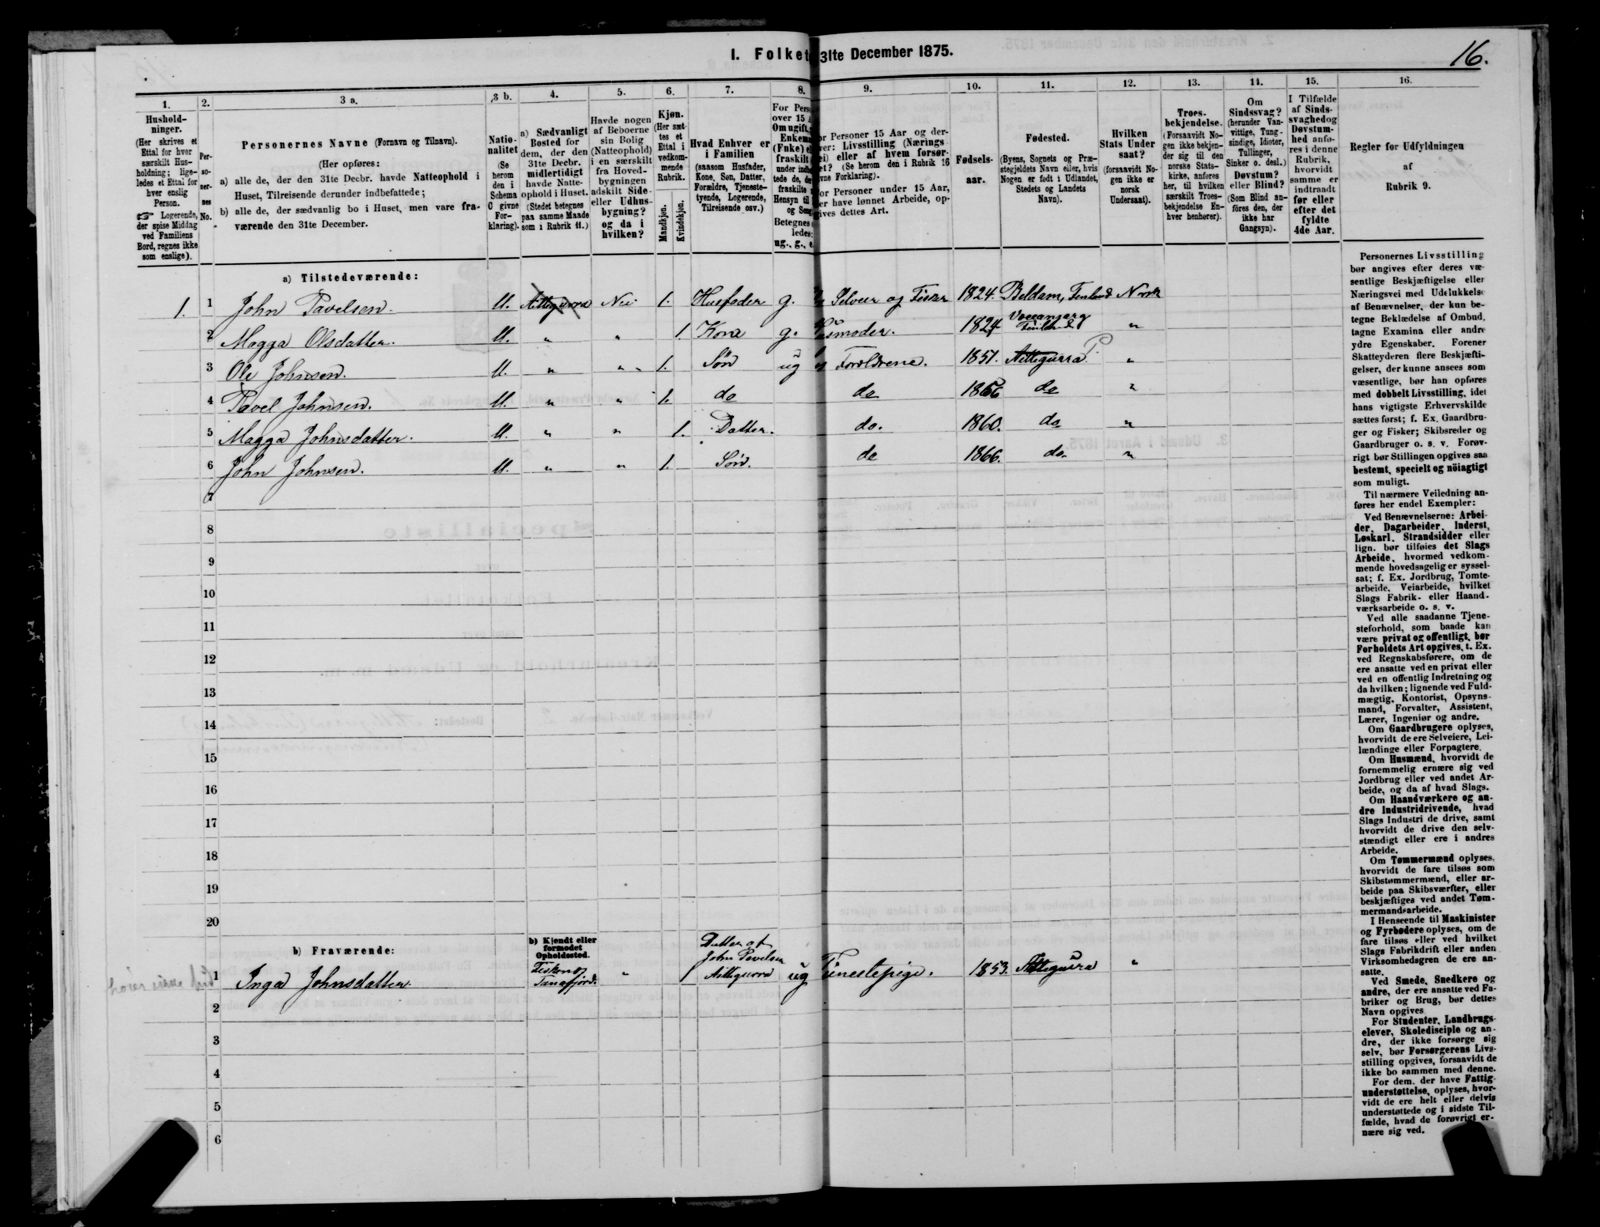 I. Folket 31te December 1875.
16.
1. 2. 3 a. 3 b. 4. 5. 6. 7. 8. 9. 10. 11. 12. 13. 14. 15. 16.
Hushold-
ninger.
(Her skrives et
Ettal for hver
særskilt Hus-
holdning; lige-
ledes et Ettal for
hver enslig
Person.
☞ Logerende,
der spise Middag
ved Familiens
Bord, regnes ikke
som enslige).
Per-
so-
ner-
nes
No.
Personernes Navne (Fornavn og Tilnavn).
(Her opføres:
a) alle de, der den 31te Decbr. havde Natteophold i
Huset, Tilreisende derunder indbefattede;
b) alle de, der sædvanlig bo i Huset, men vare fra-
værende den 31te December.
Natio-
nalitet
(Se
herom
den i
Schema
C givne
For-
klaring).
a) Sædvanligt
Bosted for
dem, der den
31te Decbr.
midlertidigt
havde Natte-
ophold i Huset.
(Stedet betegnes
paa samme Maade
som i Rubrik 11.)
Havde nogen
af Beboerne
sin Bolig
(Natteophold)
i en særskilt
fra Hoved-
bygningen
adskilt Side-
eller Udhus-
bygning?
og da i
hvilken?
Kjøn.
(Her sæt-
tes et
Ettal i
vedkom-
mende
Rubrik.
Mandkjøn.
Kvindekjøn.
Hvad Enhver er
i Familien
(saasom Husfader,
Kone, Søn, Datter,
Forældre, Tjeneste-
tyende, Logerende,
Tilreisende osv.)
For Pers
over 15 A
Om ugift,
Enkema
(Fnke) e
fraskilt
under indb
tede de, de
fraskilte
Hensyn til
og Sen
Betegnes
ledes:
ug., g., e
or Personer 15 Aar og der-
ver: Livsstilling (Nærings
ei) eller af hvem forsør-
et? (Se herom den i Rubrik 16
vne Forklaring).
or Personer under 15 Aar,
er have lønnet Arbeide, op-
gives dettes Art.
Fødsels-
aar.
Fødested.
(Byens, Sognets og Præ-
stegjeldets Navn eller, hvis
Nogen er født i Udlandet,
Stedets og Landets
Navn).
Hvilken
Stats Under
saat?
(forsaavidt No-
gen ikke er
norsk
Undersaat).
Troes-
bekjendelse.
(Forsaavidt No-
gen ikke bekjen-
der sig til den
norske Stats-
kirke, anføres
her, til hvilken
særskilt Troes-
bekjendelse En-
hver henhører).
Om
Sindssvag?
(herunder Van-
vittige, Tung-
sindige, Idioter,
Tullinger,
Sinker o. desl.)
Døvstum?
eller Blind?
(Som Blind an-
føres den, der
ikke har
Gangsyn).
I Tilfælde
af Sinds-
svaghed og
Døvstum-
hed anfø-
res i denne
Rubrik,
hvorvidt
samme er
indtraadt
før eller
efter det
fyldte
4de Aar.
Regler for Udfyldningen
af
Rubrik 9.
a) Tilstedeværende:
1. 1 John Pavelsen. M. Aittegurra Nei 1. Husfader g. Selveier og Fisker 1824. Beldam, Finland Norsk
2 Magga Olsdatter. M. „ „ 1. Kone g. Husmoder. 1824 „
3 Ole Johnsen. M. „ „ 1. Søn ug Foreldrene. 1851. Aittegurra P „
4 Pavel Johnsen. M. „ „ 1. do do do „
5 Magga Johnsdatter. M. „ „ 1. Datter. do. 1860. do „
6 John Johnsen. M. „ „ 1. Søn. do 1866. do. „
7
8
9
10
11
12
13
14
15
16
17
18
19
20
b) Fraværende:
b) Kjendt eller
formodet
Opholdssted.
1 Inga Johnsdatter. Tanafjord. „ 1 Datter af John Pavelsen Aittegurra ug Tjenestepige. 1853. Aittegurra „
2
3
4
5
6
Personernes Livsstilling
bør angives efter deres væ-
sentlige Beskjæftigelse eller
Næringsvei med Udelukkelse
af Benævnelser, der kun be-
tegne Beklædelse af Ombud,
tagne Examina eller andre
ydre Egenskaber. Forener
Skatteyderen flere Beskjæfti-
gelser, der kunne ansees som
væsentlige, bør han opføres
med dobbelt Livsstilling, idet
hans vigtigste Erhvervskilde
sættes først; f. Ex. Gaardbru-
ger og Fisker; Skibsreder og
Gaardbruger o. s. v. Forøv-
rigt bør Stillingen opgives saa
bestemt, specielt og nöiagtigt
som muligt.
Til nærmere Veiledning an-
føres her endel Exempler:
Ved Benævnelserne: Arbei-
der, Dagarbeider, Inderst,
Løskarl, Strandsidder eller
lign. bør tilføies det Slags
Arbeide, hvormed vedkom-
mende hovedsagelig er syssel-
sat; f. Ex. Jordbrug, Tomte-
arbeide, Veiarbeide, hvilket
Slags Fabrik- eller Haand-
værksarbeide o. s. v.
Ved alle saadanne Tjene-
steforhold, som baade kan
være privat og offentligt, bør
Forholdets Art opgives, t. Ex.
ved Regnskabsførere, om de
ere ansatte ved en privat eller
ved en offentlig Indretning og
da hvilken; lignende ved Fuld-
mægtig, Kontorist, Opsyns-
mand, Forvalter, Assistent,
Lærer, Ingeniør og andre.
Om Gaardbrugere oplyses,
hvorvidt de ere Selveiere, Lei-
lændinge eller Forpagtere.
Om Husmænd, hvorvidt de
fornemmelig ernære sig ved
Jordbrug eller ved andet Ar-
beide, og da af hvad Slags.
Om Haandværkere og an-
dre Industridrivende, hvad
Slags Industri de drive, samt
hvorvidt de drive den selv-
stændigt eller ere i andres
Arbeide.
Om Tømmermænd oplyses.
hvorvidt de fare tilsøs som
Skibstømmermænd, eller ar-
beide paa Skibsværfter, eller
beskjæftiges ved andet Tøm-
mermandsarbeide.
I Henseende til Maskinister
og Fyrbødere oplyses, om de
fare tilsøs eller ved hvilket
Slags Fabrikdrift eller anden
Virksomhedsgren de ere an-
satte.
Ved Smede, Snedkere og
andre, der ere ansatte ved Fa-
briker og Brug, bør dettes
Navn opgives
For Studenter, Landbrugs-
elever, Skoledisciple og an-
dre, der ikke forsørge sig
selv, bør Forsørgerens Livs-
stilling opgives, forsaavidt de
ikke bo sammen med denne.
For dem, der have Fattig-
understøttelse, oplyses, hvor-
vidt de ere helt eller delvis
understøttede og i sidste Til-
fælde, hvad de forøvrigt er-
nære sig ved.